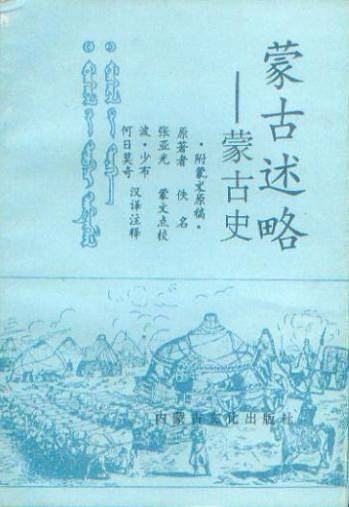 蒙古述略
——蒙古史
·附蒙文原稿·
原著者 佚名
张亚光 蒙文点校
波·少布
何日莫奇 汉译注释
内蒙古文化出版社